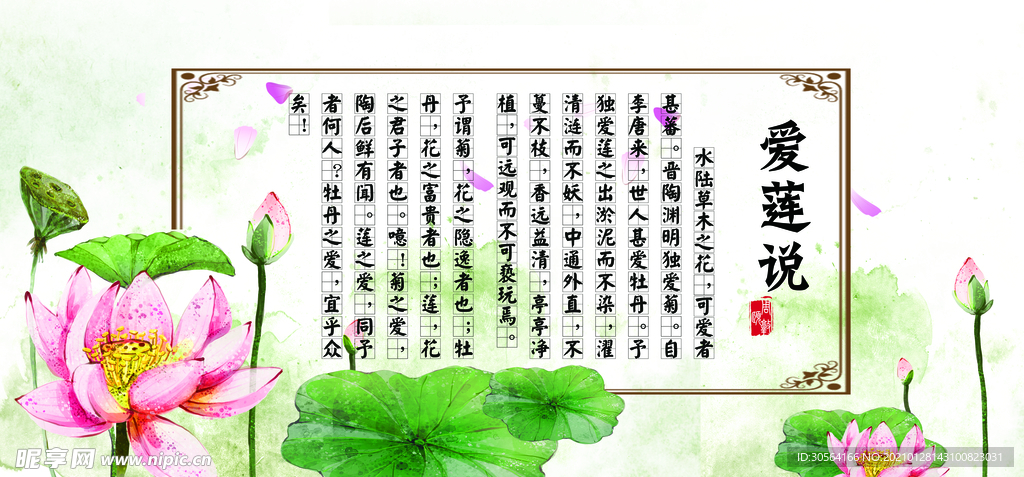 爱莲说
水陆草木之花，可爱者
甚蕃。晋陶渊明独爱菊。自
李唐来，世人甚爱牡丹。予
独爱莲之出淤泥而不染，濯
清涟而不妖，中通外直，不
蔓不枝，香远益清，亭亭净
植，可远观而不可亵玩焉。
予谓菊，花之隐逸者也；牡
丹，花之富贵者也；莲，花
之君子者也。噫！菊之爱，
陶后鲜有闻。莲之爱，同予
者何人？牡丹之爱，宜乎众
矣！
昵享网 www.nipic.cn
ID:30564166 NO:20210128143100823031